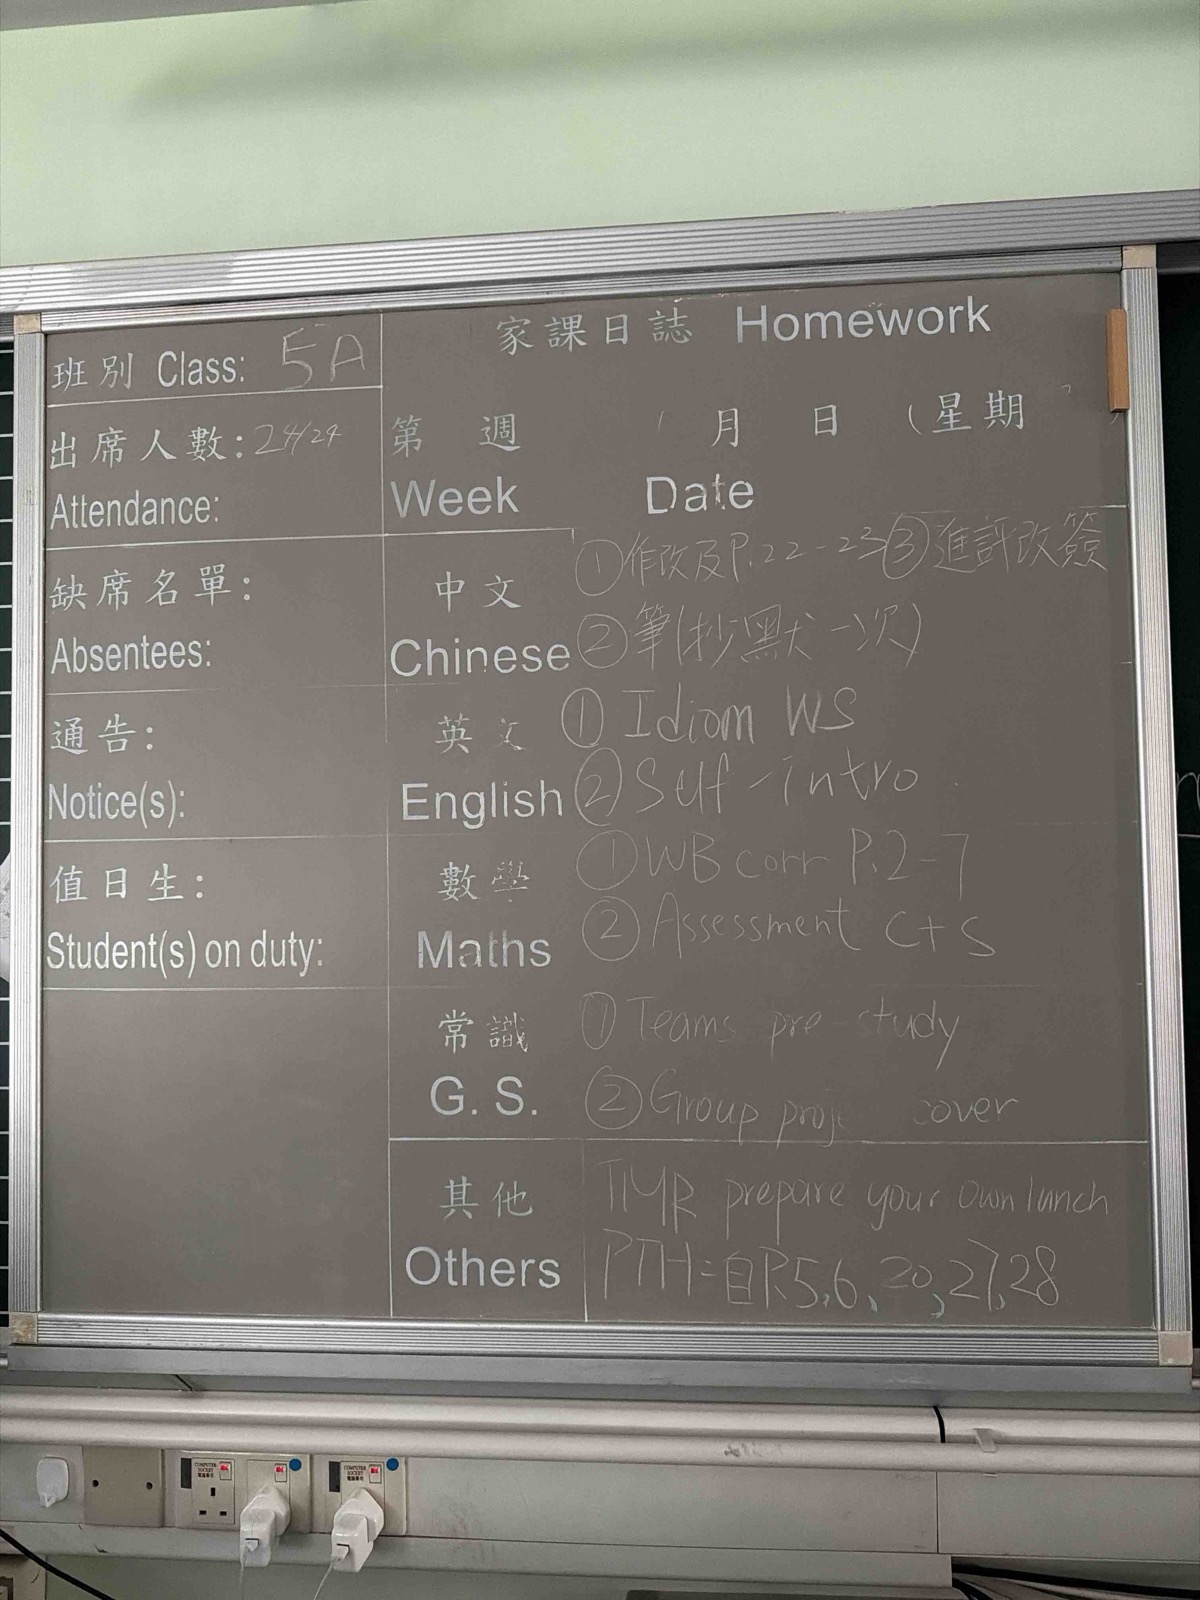 家課日誌 Homework
班別 Class: 5A
出席人數: 24/24
Attendance:
第 週 月 日 (星期
Week Date
缺席名單:
Absentees:
中文
Chinese
①作改及P.22-23 ③進評改簽
②筆(抄默一次)
通告:
Notice(s):
英文
English
①Idiom WS
②Self-intro
值日生:
Student(s) on duty:
數學
Maths
①WB corr P.2-7
②Assessment C+S
常識
G. S.
①Teams pre-study
②Group proj cover
其他
Others
TMR prepare your own lunch
PTH:自P.5,6、20,27,28
COMPUTER SOCKET
COMPUTER SOCKET